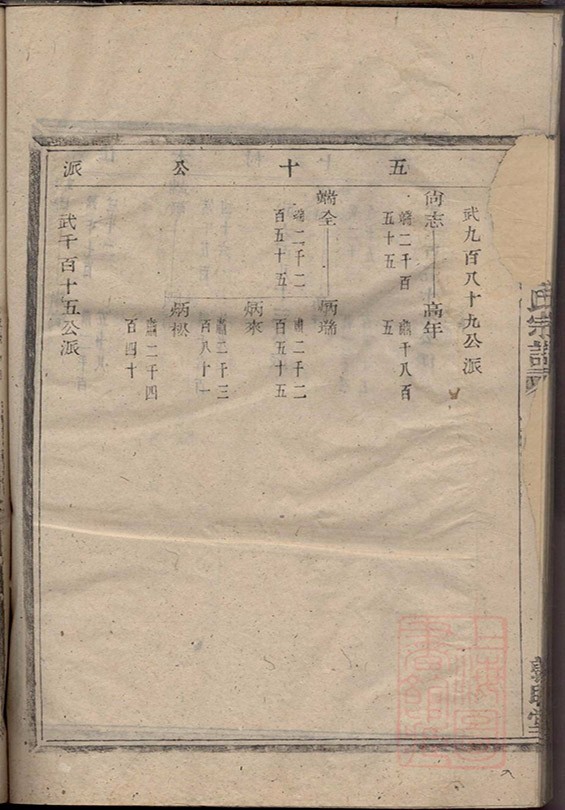 五十公派
武九百八十九公派
尙志
高年
端二千百
五十五
千八百
五
端全
炳瑞
端二千二
百五十五
二千二
百五十五
炳來
二千三
百八十一
炳
二千四
百四十
武千百十五公派
氏宗譜
堂